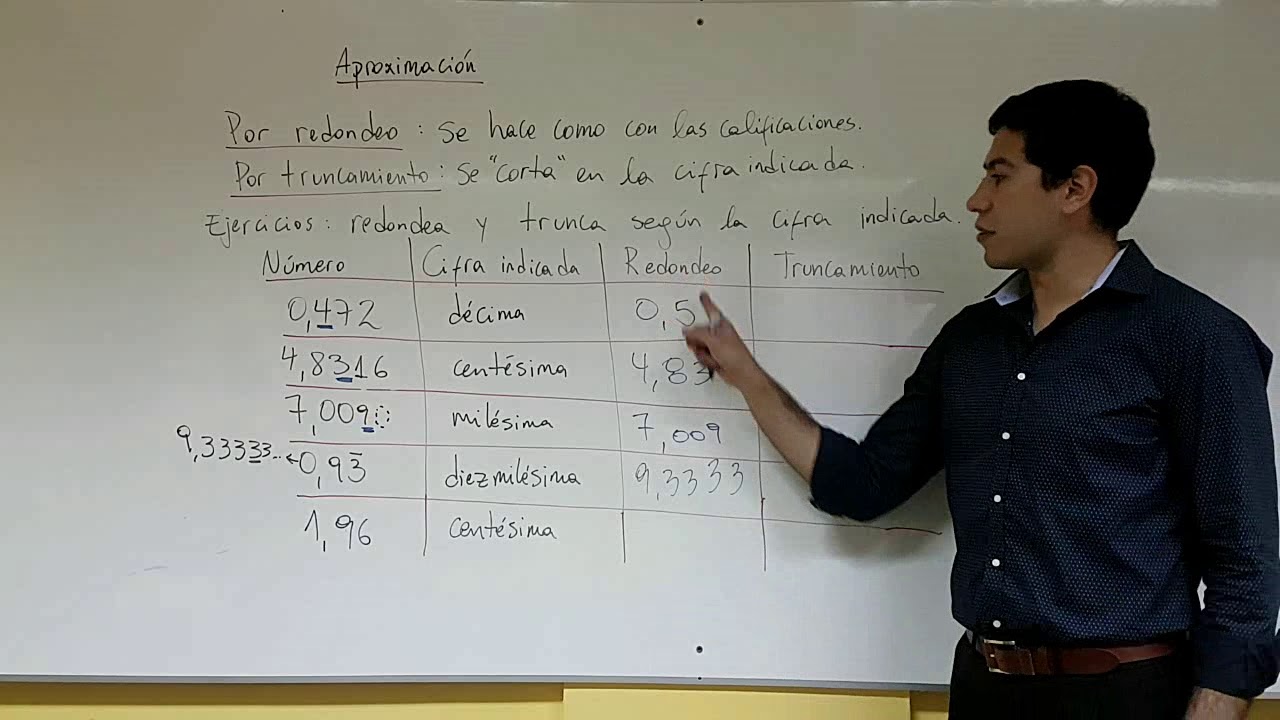 Aproximación
Por redondeo : Se hace como con las calificaciones.
Por truncamiento : Se "corta" en la cifra indicada.
Ejercicios : redondea y trunca según la cifra indicada.
Número Cifra indicada Redondeo Truncamiento
0,472 décima 0,5
4,8316 centésima 4,83
7,009 milésima 7,009
9,33333... ← 0,93̄ diezmilésima 9,3333
1,96 centésima